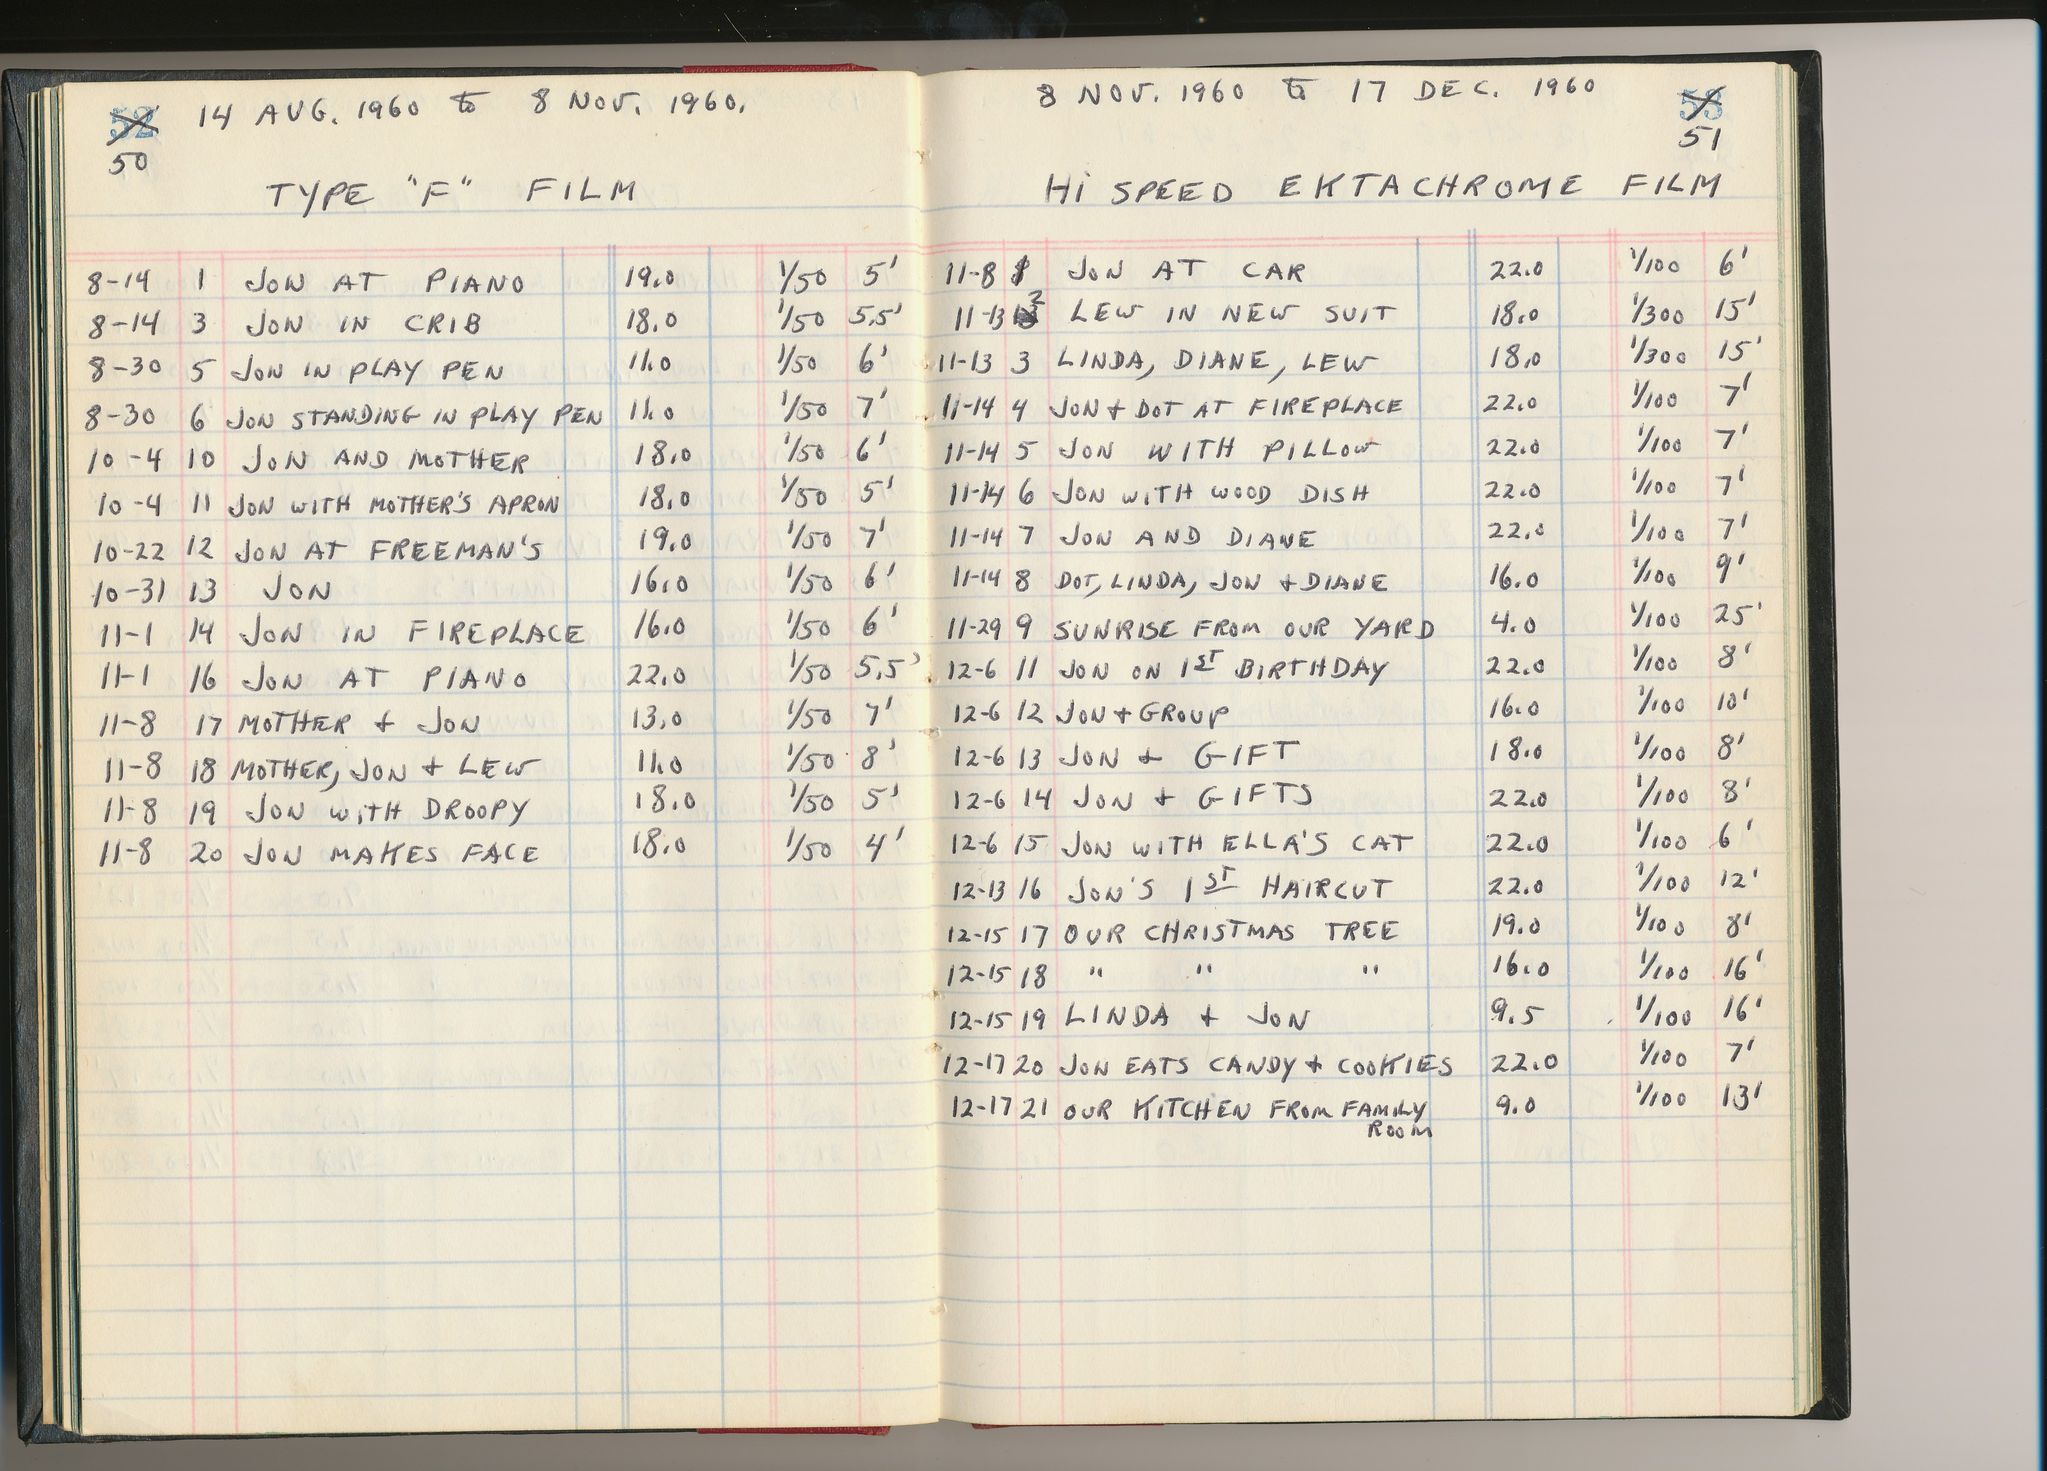 52 14 AUG. 1960 to 8 NOV. 1960.
50
TYPE "F" FILM
8-14 1 JON AT PIANO 19.0 1/50 5'
8-14 3 JON IN CRIB 18.0 1/50 5.5'
8-30 5 JON IN PLAY PEN 11.0 1/50 6'
8-30 6 JON STANDING IN PLAY PEN 11.0 1/50 7'
10-4 10 JON AND MOTHER 18.0 1/50 6'
10-4 11 JON WITH MOTHER'S APRON 18.0 1/50 5'
10-22 12 JON AT FREEMAN'S 19.0 1/50 7'
10-31 13 JON 16.0 1/50 6'
11-1 14 JON IN FIREPLACE 16.0 1/50 6'
11-1 16 JON AT PIANO 22.0 1/50 5.5'
11-8 17 MOTHER & JON 13.0 1/50 7'
11-8 18 MOTHER, JON & LEW 11.0 1/50 8'
11-8 19 JON WITH DROOPY 18.0 1/50 5'
11-8 20 JON MAKES FACE 18.0 1/50 4'
8 NOV. 1960 to 17 DEC. 1960 53
51
Hi SPEED EKTACHROME FILM
11-8 1 JON AT CAR 22.0 1/100 6'
11-13 2 LEW IN NEW SUIT 18.0 1/300 15'
11-13 3 LINDA, DIANE, LEW 18.0 1/300 15'
11-14 4 JON & DOT AT FIREPLACE 22.0 1/100 7'
11-14 5 JON WITH PILLOW 22.0 1/100 7'
11-14 6 JON WITH WOOD DISH 22.0 1/100 7'
11-14 7 JON AND DIANE 22.0 1/100 7'
11-14 8 DOT, LINDA, JON & DIANE 16.0 1/100 9'
11-29 9 SUNRISE FROM OUR YARD 4.0 1/100 25'
12-6 11 JON ON 1ST BIRTHDAY 22.0 1/100 8'
12-6 12 JON & GROUP 16.0 1/100 10'
12-6 13 JON & GIFT 18.0 1/100 8'
12-6 14 JON & GIFTS 22.0 1/100 8'
12-6 15 JON WITH ELLA'S CAT 22.0 1/100 6'
12-13 16 JON'S 1ST HAIRCUT 22.0 1/100 12'
12-15 17 OUR CHRISTMAS TREE 19.0 1/100 8'
12-15 18 " " " 16.0 1/100 16'
12-15 19 LINDA & JON 9.5 1/100 16'
12-17 20 JON EATS CANDY & COOKIES 22.0 1/100 7'
12-17 21 OUR KITCHEN FROM FAMILY 9.0 1/100 13'
ROOM